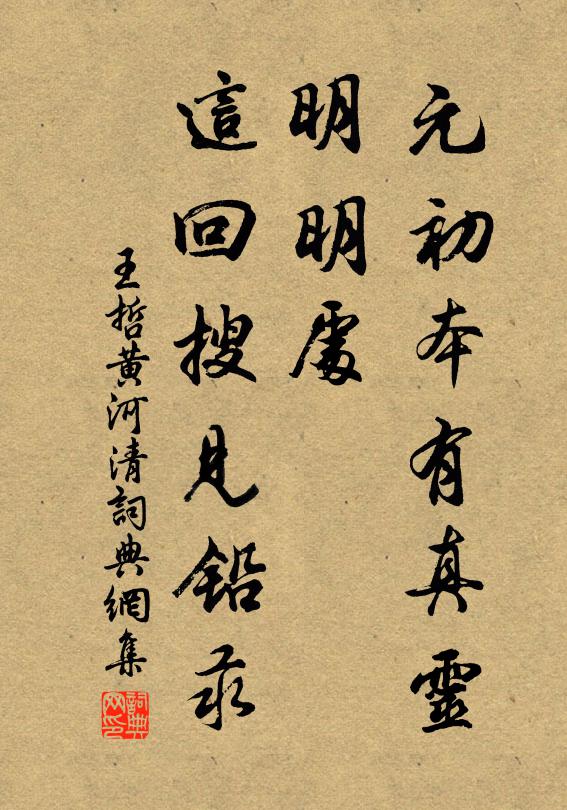 元初本有真靈
明明處
這回搜見鉛汞
王哲黃河清詞典網集
詞典網印